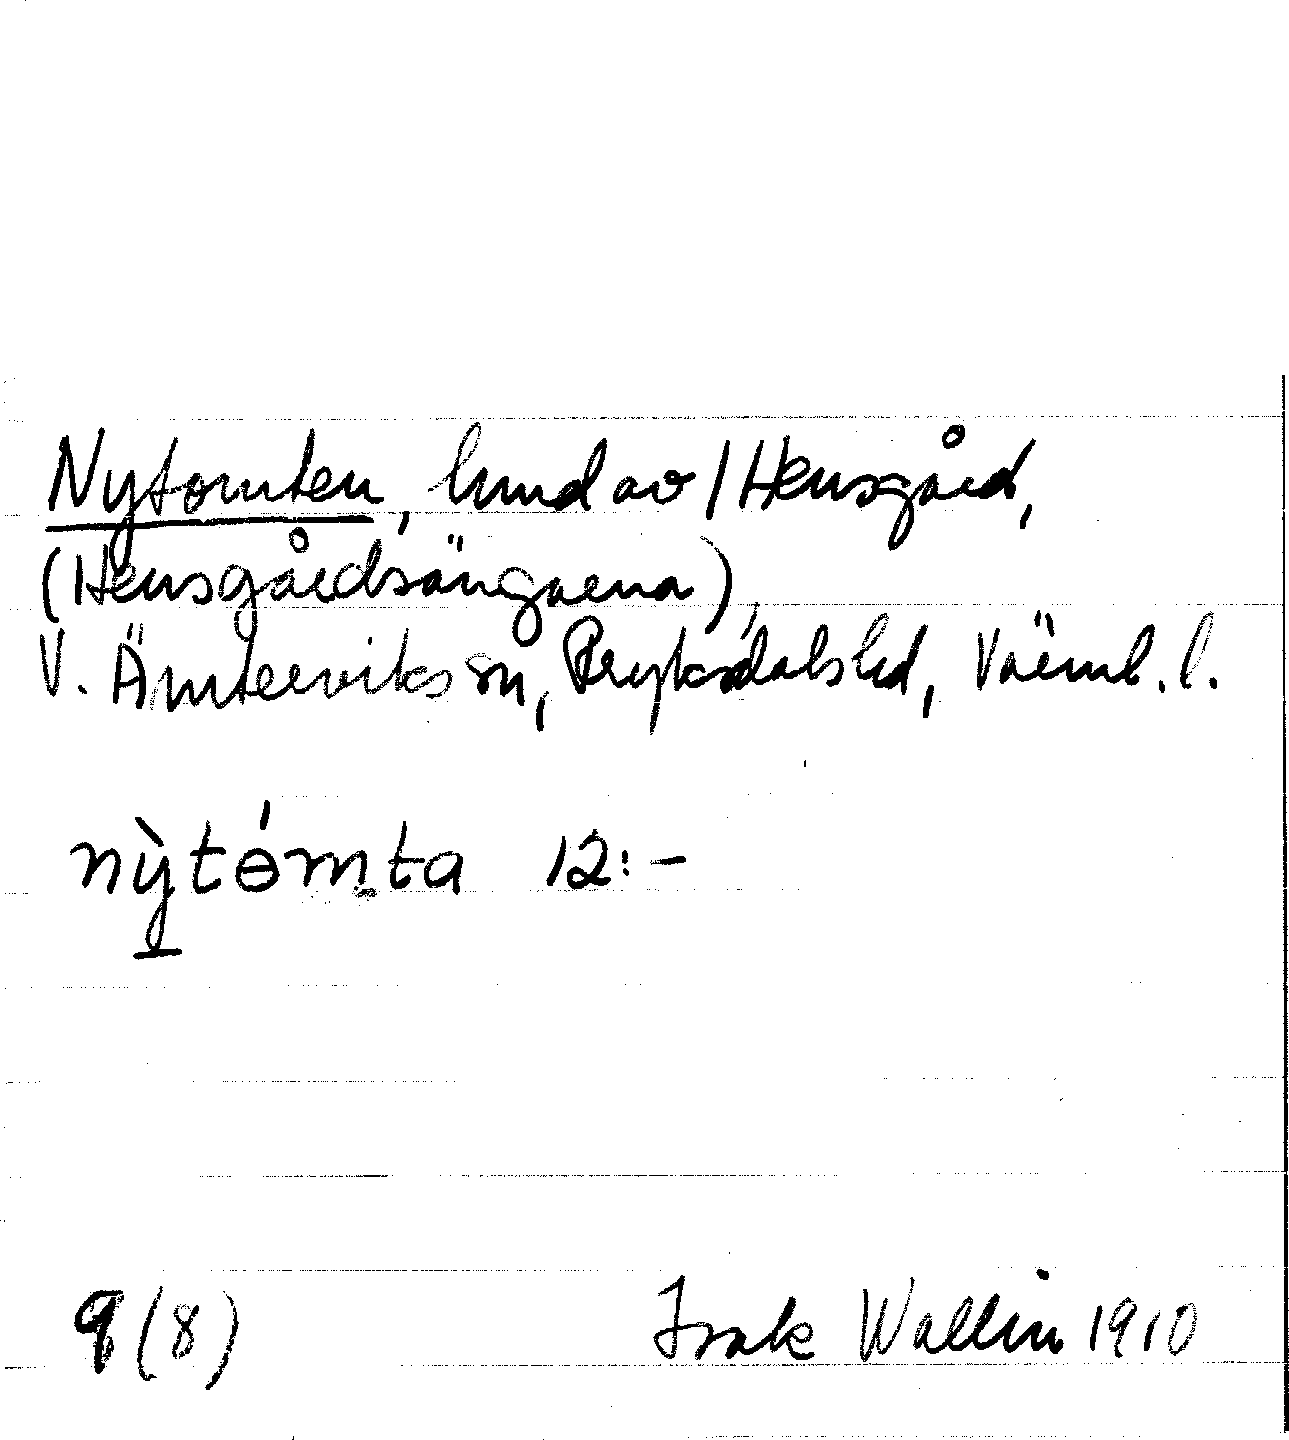 Nytomten, lund av 1 Hensgård,
(Hensgårdsängarna),
V. Ämterviks sn, Fryksdals hd, Värml. l.
nỳtɵ́mta 12:-
9 (8) Isak Wallin 1910